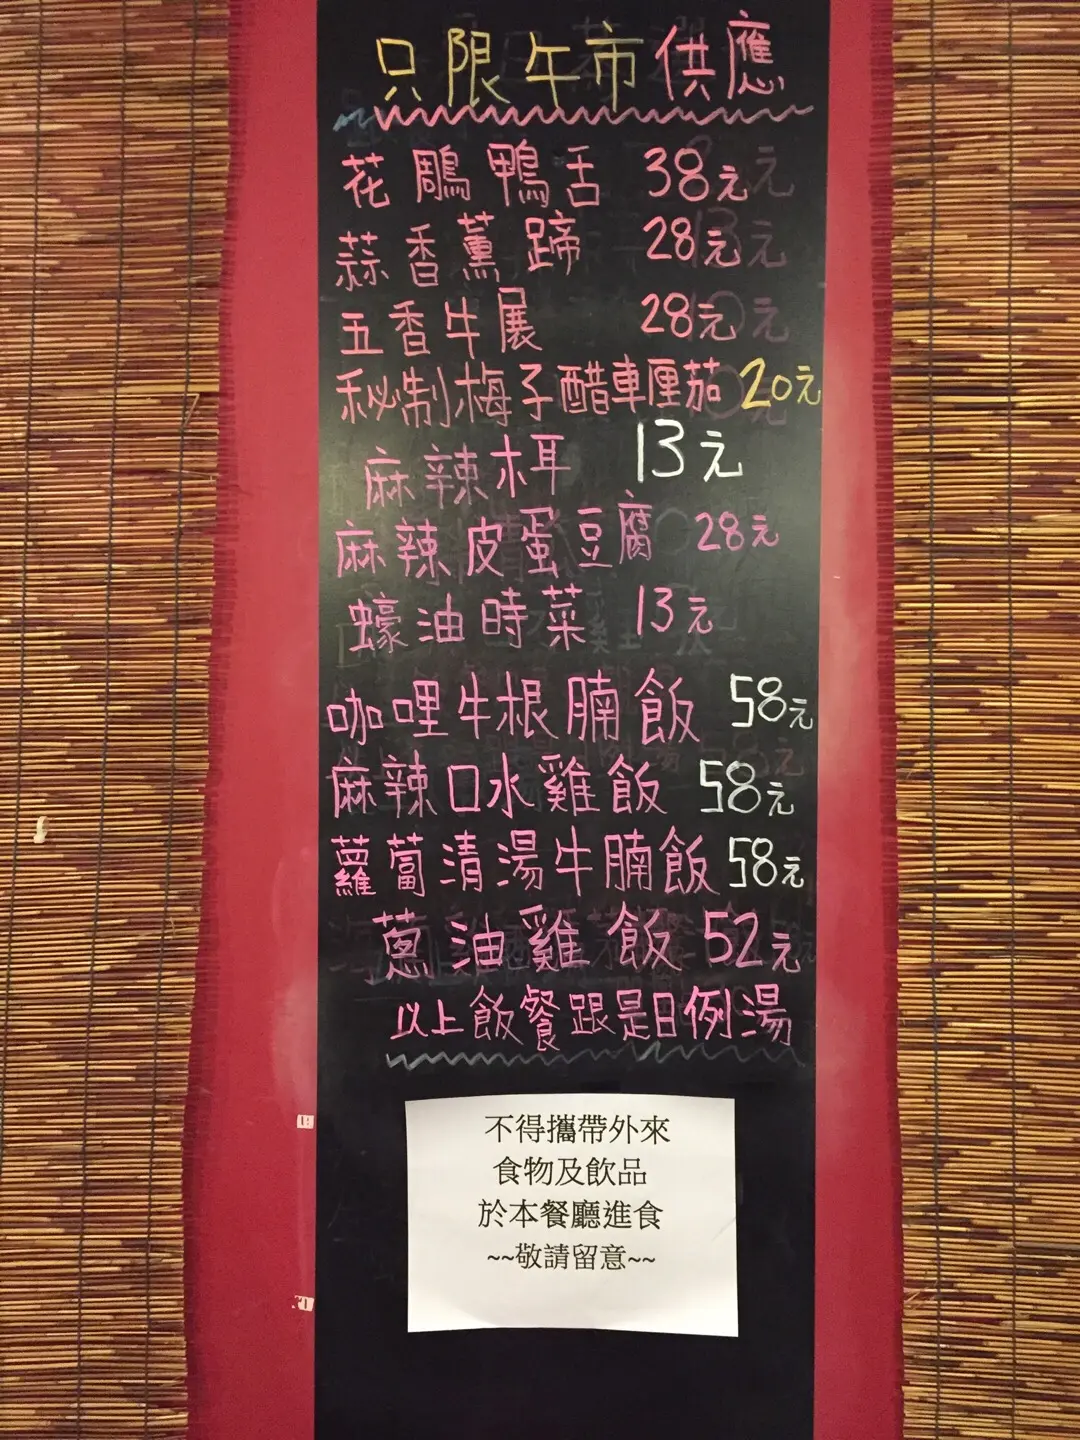 只限午市供應
花鵰鴨舌 38元
蒜香薰蹄 28元
五香牛展 28元
秘制梅子醋車厘茄 20元
麻辣木耳 13元
麻辣皮蛋豆腐 28元
蠔油時菜 13元
咖哩牛根腩飯 58元
麻辣口水雞飯 58元
蘿蔔清湯牛腩飯 58元
蔥油雞飯 52元
以上飯餐跟是日例湯
不得攜帶外來
食物及飲品
於本餐廳進食
~~敬請留意~~